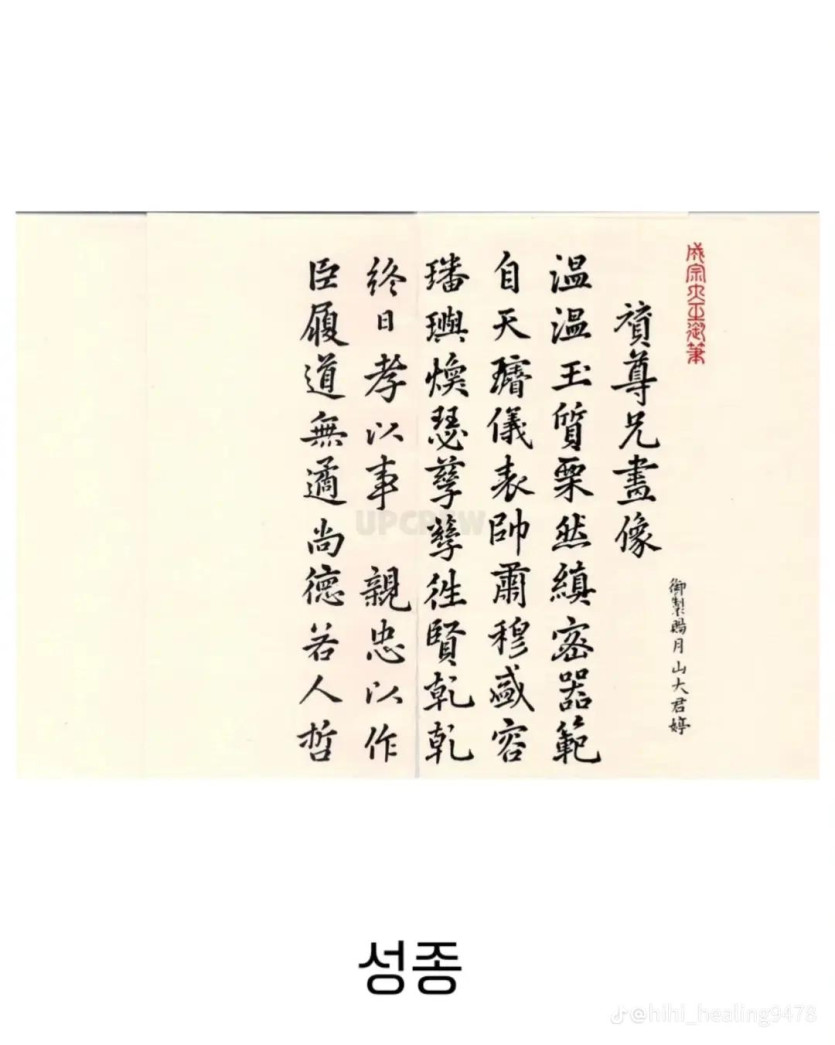 成宗大王御筆
御製賜月山大君婷
賛尊兄畫像
温温玉質栗然縝密器範
自天璿儀表帥肅穆盛容
璠璵煥瑟孳孳徃賢乾乾
終日孝以事 親忠以作
臣履道無遹尚德若人哲
UPCREW
성종
@hihi_healing9478